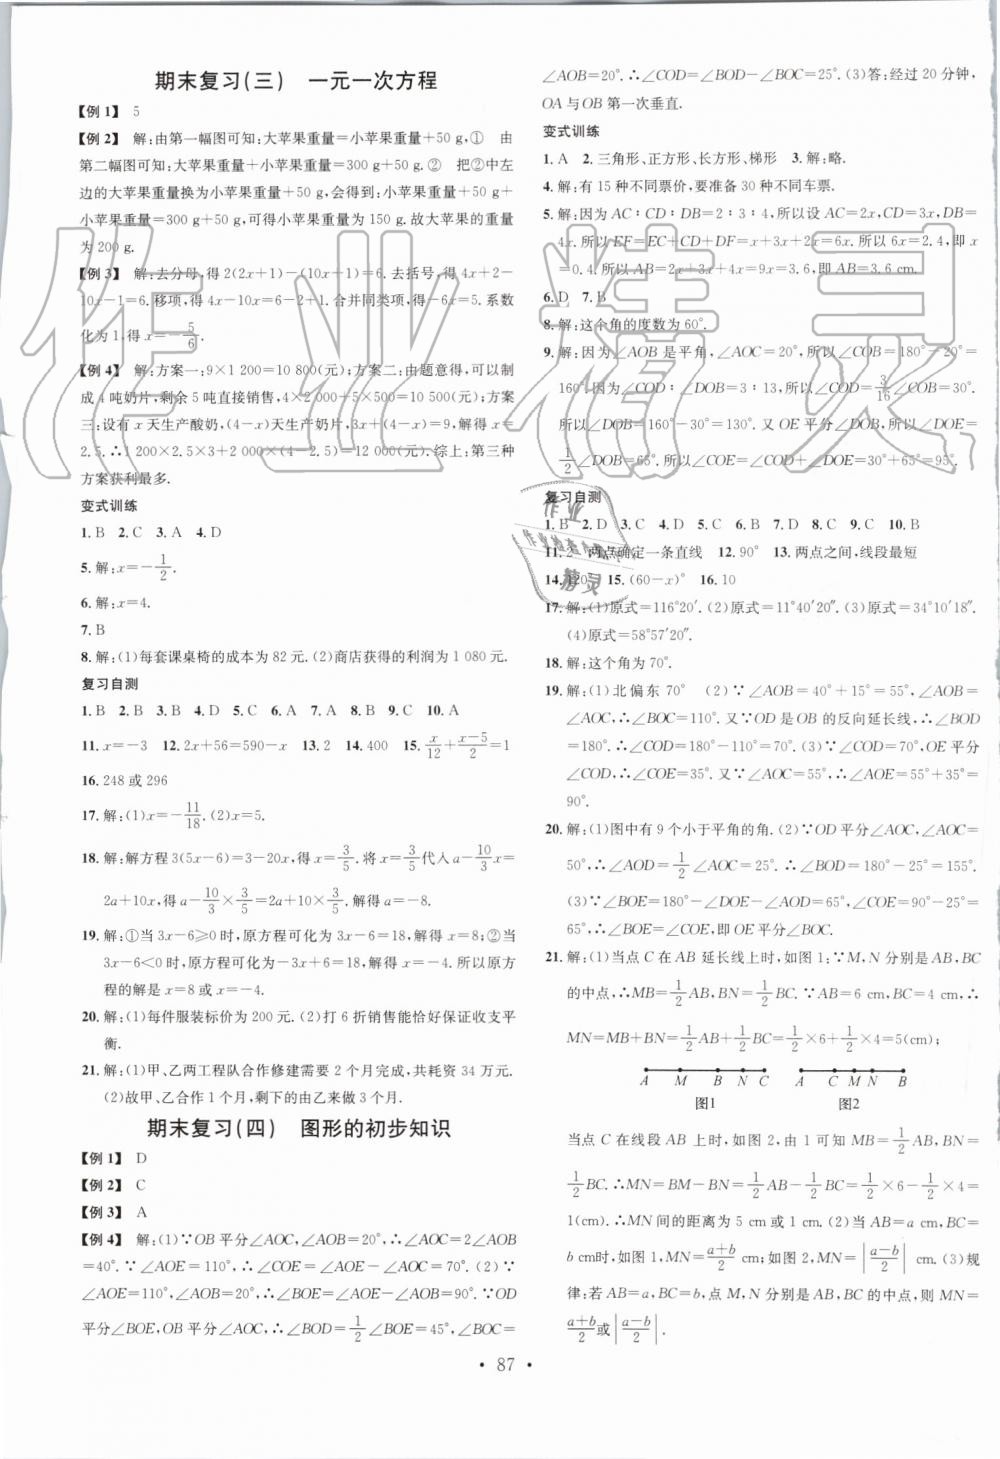 期末复习(三)　一元一次方程
【例1】　5
【例2】　解:由第一幅图可知:大苹果重量=小苹果重量+50 g,①　由
第二幅图可知:大苹果重量+小苹果重量=300 g+50 g.②　把②中左
边的大苹果重量换为小苹果重量+50 g,会得到:小苹果重量+50 g+
小苹果重量=300 g+50 g,可得小苹果重量为 150 g.故大苹果的重量
为 200 g.
【例3】　解:去分母,得 2(2x+1)-(10x+1)=6.去括号,得 4x+2-
10x-1=6.移项,得 4x-10x=6-2+1.合并同类项,得-6x=5.系数
化为 1,得 x=-5/6.
【例4】　解:方案一:9×1 200=10 800(元);方案二:由题意得,可以制
成 4 吨奶片,剩余 5 吨直接销售,4×2 000+5×500=10 500(元);方案
三:设有 x 天生产酸奶,(4-x)天生产奶片,3x+(4-x)=9,解得 x=
2.5.∴1 200×2.5×3+2 000×(4-2.5)=12 000(元).综上:第三种
方案获利最多.
变式训练
1.B　2.C　3.A　4.D
5.解:x=-1/2.
6.解:x=4.
7.B
8.解:(1)每套课桌椅的成本为 82 元.(2)商店获得的利润为 1 080 元.
复习自测
1.B　2.B　3.B　4.D　5.C　6.C　7.A　8.B　9.C　10.A
11.x=-3　12.2x+56=590-x　13.2　14.400　15.x/12+(x-5)/2=1
16.248 或 296
17.解:(1)x=-11/18.(2)x=5.
18.解:解方程 3(5x-6)=3-20x,得 x=3/5.将 x=3/5代入 a-10/3x=
2a+10x,得 a-10/3×3/5=2a+10×3/5,解得 a=-8.
19.解:①当 3x-6≥0时,原方程可化为 3x-6=18,解得 x=8;②当
3x-6<0 时,原方程可化为-3x+6=18,解得 x=-4.所以原方
程的解是 x=8 或 x=-4.
20.解:(1)每件服装标价为 200 元.(2)打 6 折销售能恰好保证收支平
衡.
21.解:(1)甲、乙两工程队合作修建需要 2 个月完成,共耗资 34 万元.
(2)故甲、乙合作 1 个月,剩下的由乙来做 3 个月.
期末复习(四)　图形的初步知识
【例1】　D
【例2】　C
【例3】　A
【例4】　解:(1)∵OB 平分∠AOC,∠AOB=20°,∴∠AOC=2∠AOB
=40°.∵∠AOE=110°,∴∠COE=∠AOE-∠AOC=70°.(2)∵
∠AOE=110°,∠AOB=20°,∴∠BOE=∠AOE-∠AOB=90°.∵OD
平分∠BOE,OB 平分∠AOC,∴∠BOD=1/2∠BOE=45°,∠BOC=
∠AOB=20°.∴∠COD=∠BOD-∠BOC=25°.(3)答:经过 20 分钟,
OA 与 OB 第一次垂直.
变式训练
1.A　2.三角形、正方形、长方形、梯形　3.解:略.
4.解:有 15 种不同票价,要准备 30 种不同车票.
5.解:因为 AC∶CD∶DB=2∶3∶4,所以设 AC=2x,CD=3x,DB=
4x.所以 EF=EC+CD+DF=x+3x+2x=6x.所以 6x=2.4,即 x
=0.4.所以 AB=2x+3x+4x=9x=3.6,即 AB=3.6 cm.
6.D　7.B
8.解:这个角的度数为 60°.
9.解:因为∠AOB 是平角,∠AOC=20°,所以∠COB=180°-20°=
160°.因为∠COD∶∠DOB=3∶13,所以∠COD=3/16∠COB=30°.
所以∠DOB=160°-30°=130°.又 OE 平分∠DOB,所以∠DOE=
1/2∠DOB=65°.所以∠COE=∠COD+∠DOE=30°+65°=95°.
复习自测
1.B　2.D　3.C　4.C　5.C　6.B　7.D　8.C　9.C　10.B
11.2　两点确定一条直线　12.90°　13.两点之间,线段最短
14.120　15.(60-x)°　16.10
17.解:(1)原式=116°20′.(2)原式=11°40′20″.(3)原式=34°10′18″.
(4)原式=58°57′20″.
18.解:这个角为 70°.
19.解:(1)北偏东 70°　(2)∵∠AOB=40°+15°=55°,∠AOB=
∠AOC,∴∠BOC=110°.又∵OD 是 OB 的反向延长线,∴∠BOD
=180°.∴∠COD=180°-110°=70°.(3)∵∠COD=70°,OE 平分
∠COD,∴∠COE=35°.又∵∠AOC=55°,∴∠AOE=55°+35°=
90°.
20.解:(1)图中有 9 个小于平角的角.(2)∵OD 平分∠AOC,∠AOC=
50°,∴∠AOD=1/2∠AOC=25°.∴∠BOD=180°-25°=155°.
(3)∵∠BOE=180°-∠DOE-∠AOD=65°,∠COE=90°-25°=
65°,∴∠BOE=∠COE,即 OE 平分∠BOC.
21.解:(1)当点 C 在 AB 延长线上时,如图 1:∵M,N 分别是 AB,BC
的中点,∴MB=1/2AB,BN=1/2BC.∵AB=6 cm,BC=4 cm,∴
MN=MB+BN=1/2AB+1/2BC=1/2×6+1/2×4=5(cm);
A　M　B　N　C　　A　C　M　N　B
图1　图2
当点 C 在线段 AB 上时,如图 2,由 1 可知 MB=1/2AB,BN=
1/2BC.∴MN=BM-BN=1/2AB-1/2BC=1/2×6-1/2×4=
1(cm).∴MN 间的距离为 5 cm或 1 cm.(2)当 AB=a cm,BC=
b cm时,如图 1,MN=(a+b)/2 cm;如图 2,MN=|(a-b)/2| cm.(3)规
律:若 AB=a,BC=b,点 M,N 分别是 AB,BC 的中点,则 MN=
(a+b)/2或|(a-b)/2|.
· 87 ·
作业精灵